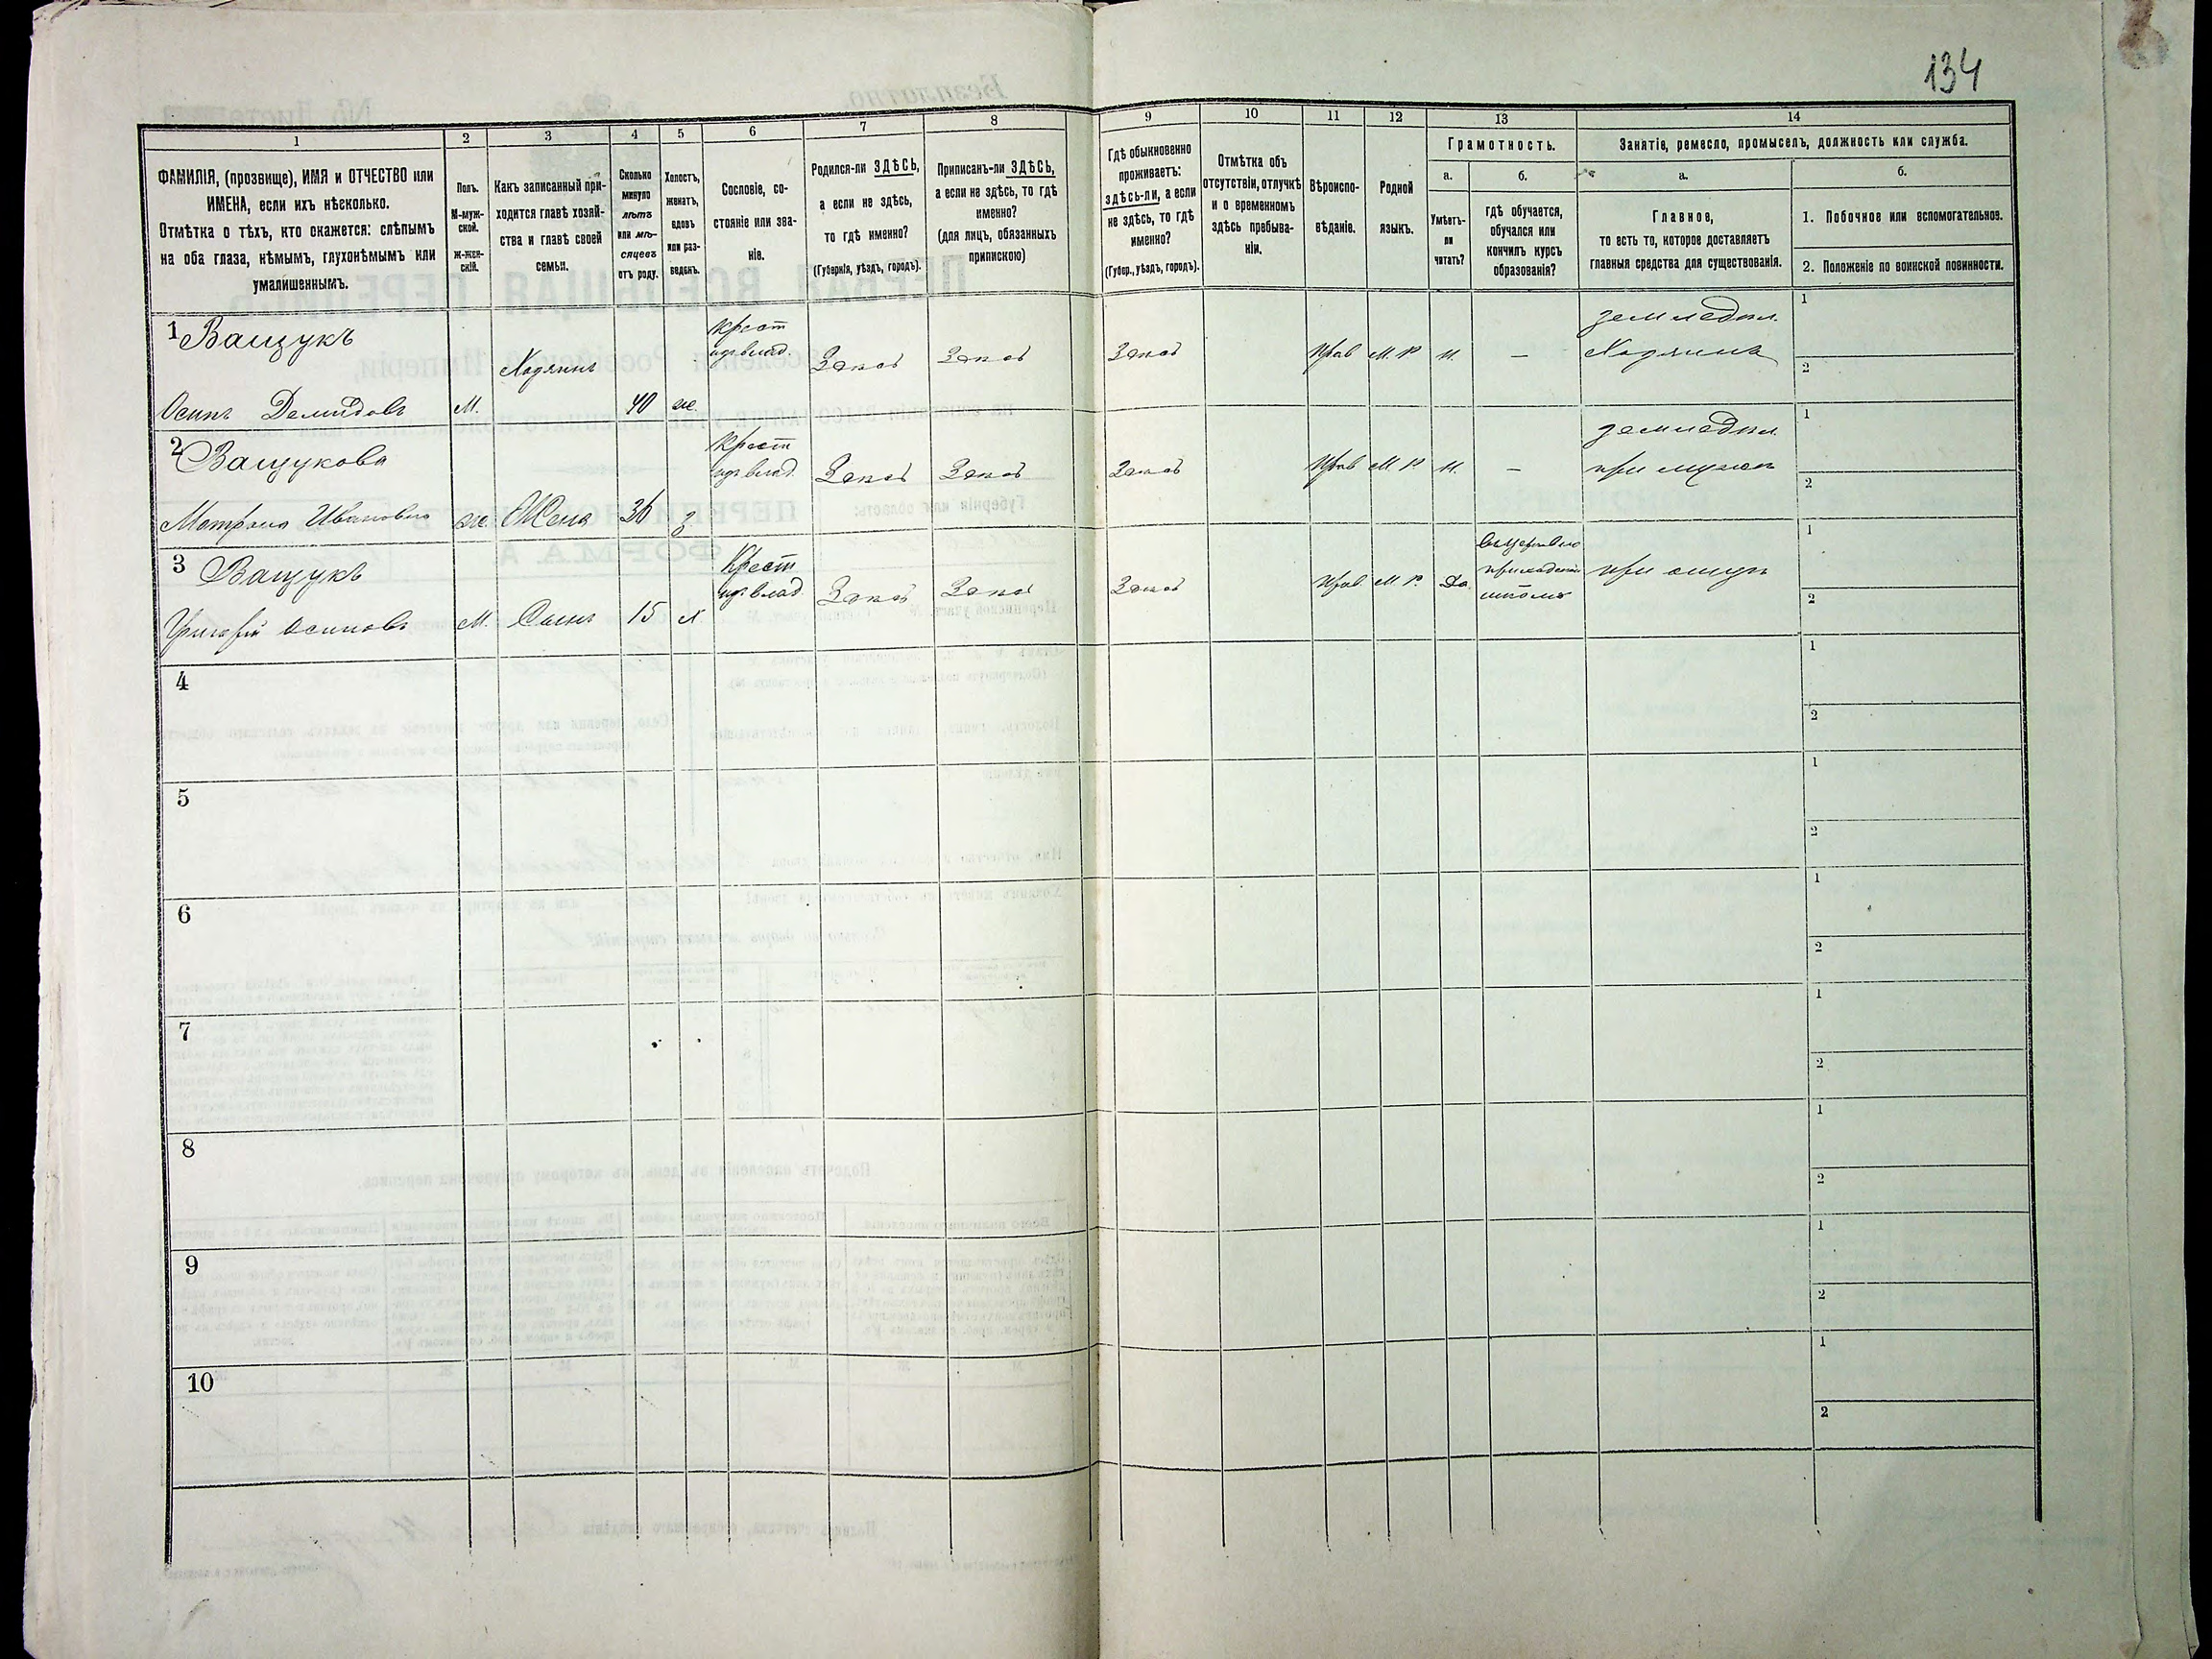 134
1
2
3
4
5
6
7
8
9
10
11
12
13
14
ФАМИЛІЯ, (прозвище), ИМЯ и ОТЧЕСТВО или
ИМЕНА, если ихъ нѣсколько.
Отмѣтка о тѣхъ, кто окажется: слѣпымъ
на оба глаза, нѣмымъ, глухонѣмымъ или
умалишеннымъ.
Полъ.
М-муж-
ской.
Ж-жен-
скій.
Какъ записанный при-
ходится главѣ хозяй-
ства и главѣ своей
семьи.
Сколько
минуло
лѣтъ
или мѣ-
сяцевъ
отъ роду.
Холостъ,
женатъ,
вдовъ
или раз-
веденъ.
Сословіе, со-
стояніе или зва-
ніе.
Родился-ли ЗДѢСЬ,
а если не здѣсь,
то гдѣ именно?
(Губернія, уѣздъ, городъ).
Приписанъ-ли ЗДѢСЬ,
а если не здѣсь, то гдѣ
именно?
(для лицъ, обязанныхъ
припискою)
Гдѣ обыкновенно
проживаетъ:
здѣсь-ли, а если
не здѣсь, то гдѣ
именно?
(Губер., уѣздъ, городъ).
Отмѣтка объ
отсутствіи, отлучкѣ
и о временномъ
здѣсь пребыва-
ніи.
Вѣроиспо-
вѣданіе.
Родной
языкъ.
Грамотность.
а.
Умѣетъ-
ли
читать?
б.
гдѣ обучается,
обучался или
кончилъ курсъ
образованія?
Занятіе, ремесло, промыселъ, должность или служба.
а.
Главное,
то есть то, которое доставляетъ
главныя средства для существованія.
б.
1. Побочное или вспомогательное.
2. Положеніе по воинской повинности.
1 Ващукъ
Осипъ Демидовъ
М.
Хозяинъ
40
ж.
Крест
изъ влад.
Здѣсь
Здѣсь
Здѣсь
Прав
М. Р.
Н.
—
земледѣл.
Хозяинъ
1
2
2 Ващукова
Матрона Ивановна
ж.
Жена
36
з
Крест
изъ влад.
Здѣсь
Здѣсь
Здѣсь
Прав
М Р
Н.
—
земледѣл.
при мужѣ
1
2
3 Ващукъ
Григорій Осиповъ
М.
Сынъ
15
х.
Крест
изъ влад.
Здѣсь
Здѣсь
Здѣсь
Прав.
М Р.
Да
въ церковно
приходской
школѣ
при отцѣ
1
2
4
1
2
5
1
2
6
1
2
7
1
2
8
1
2
9
1
2
10
1
2